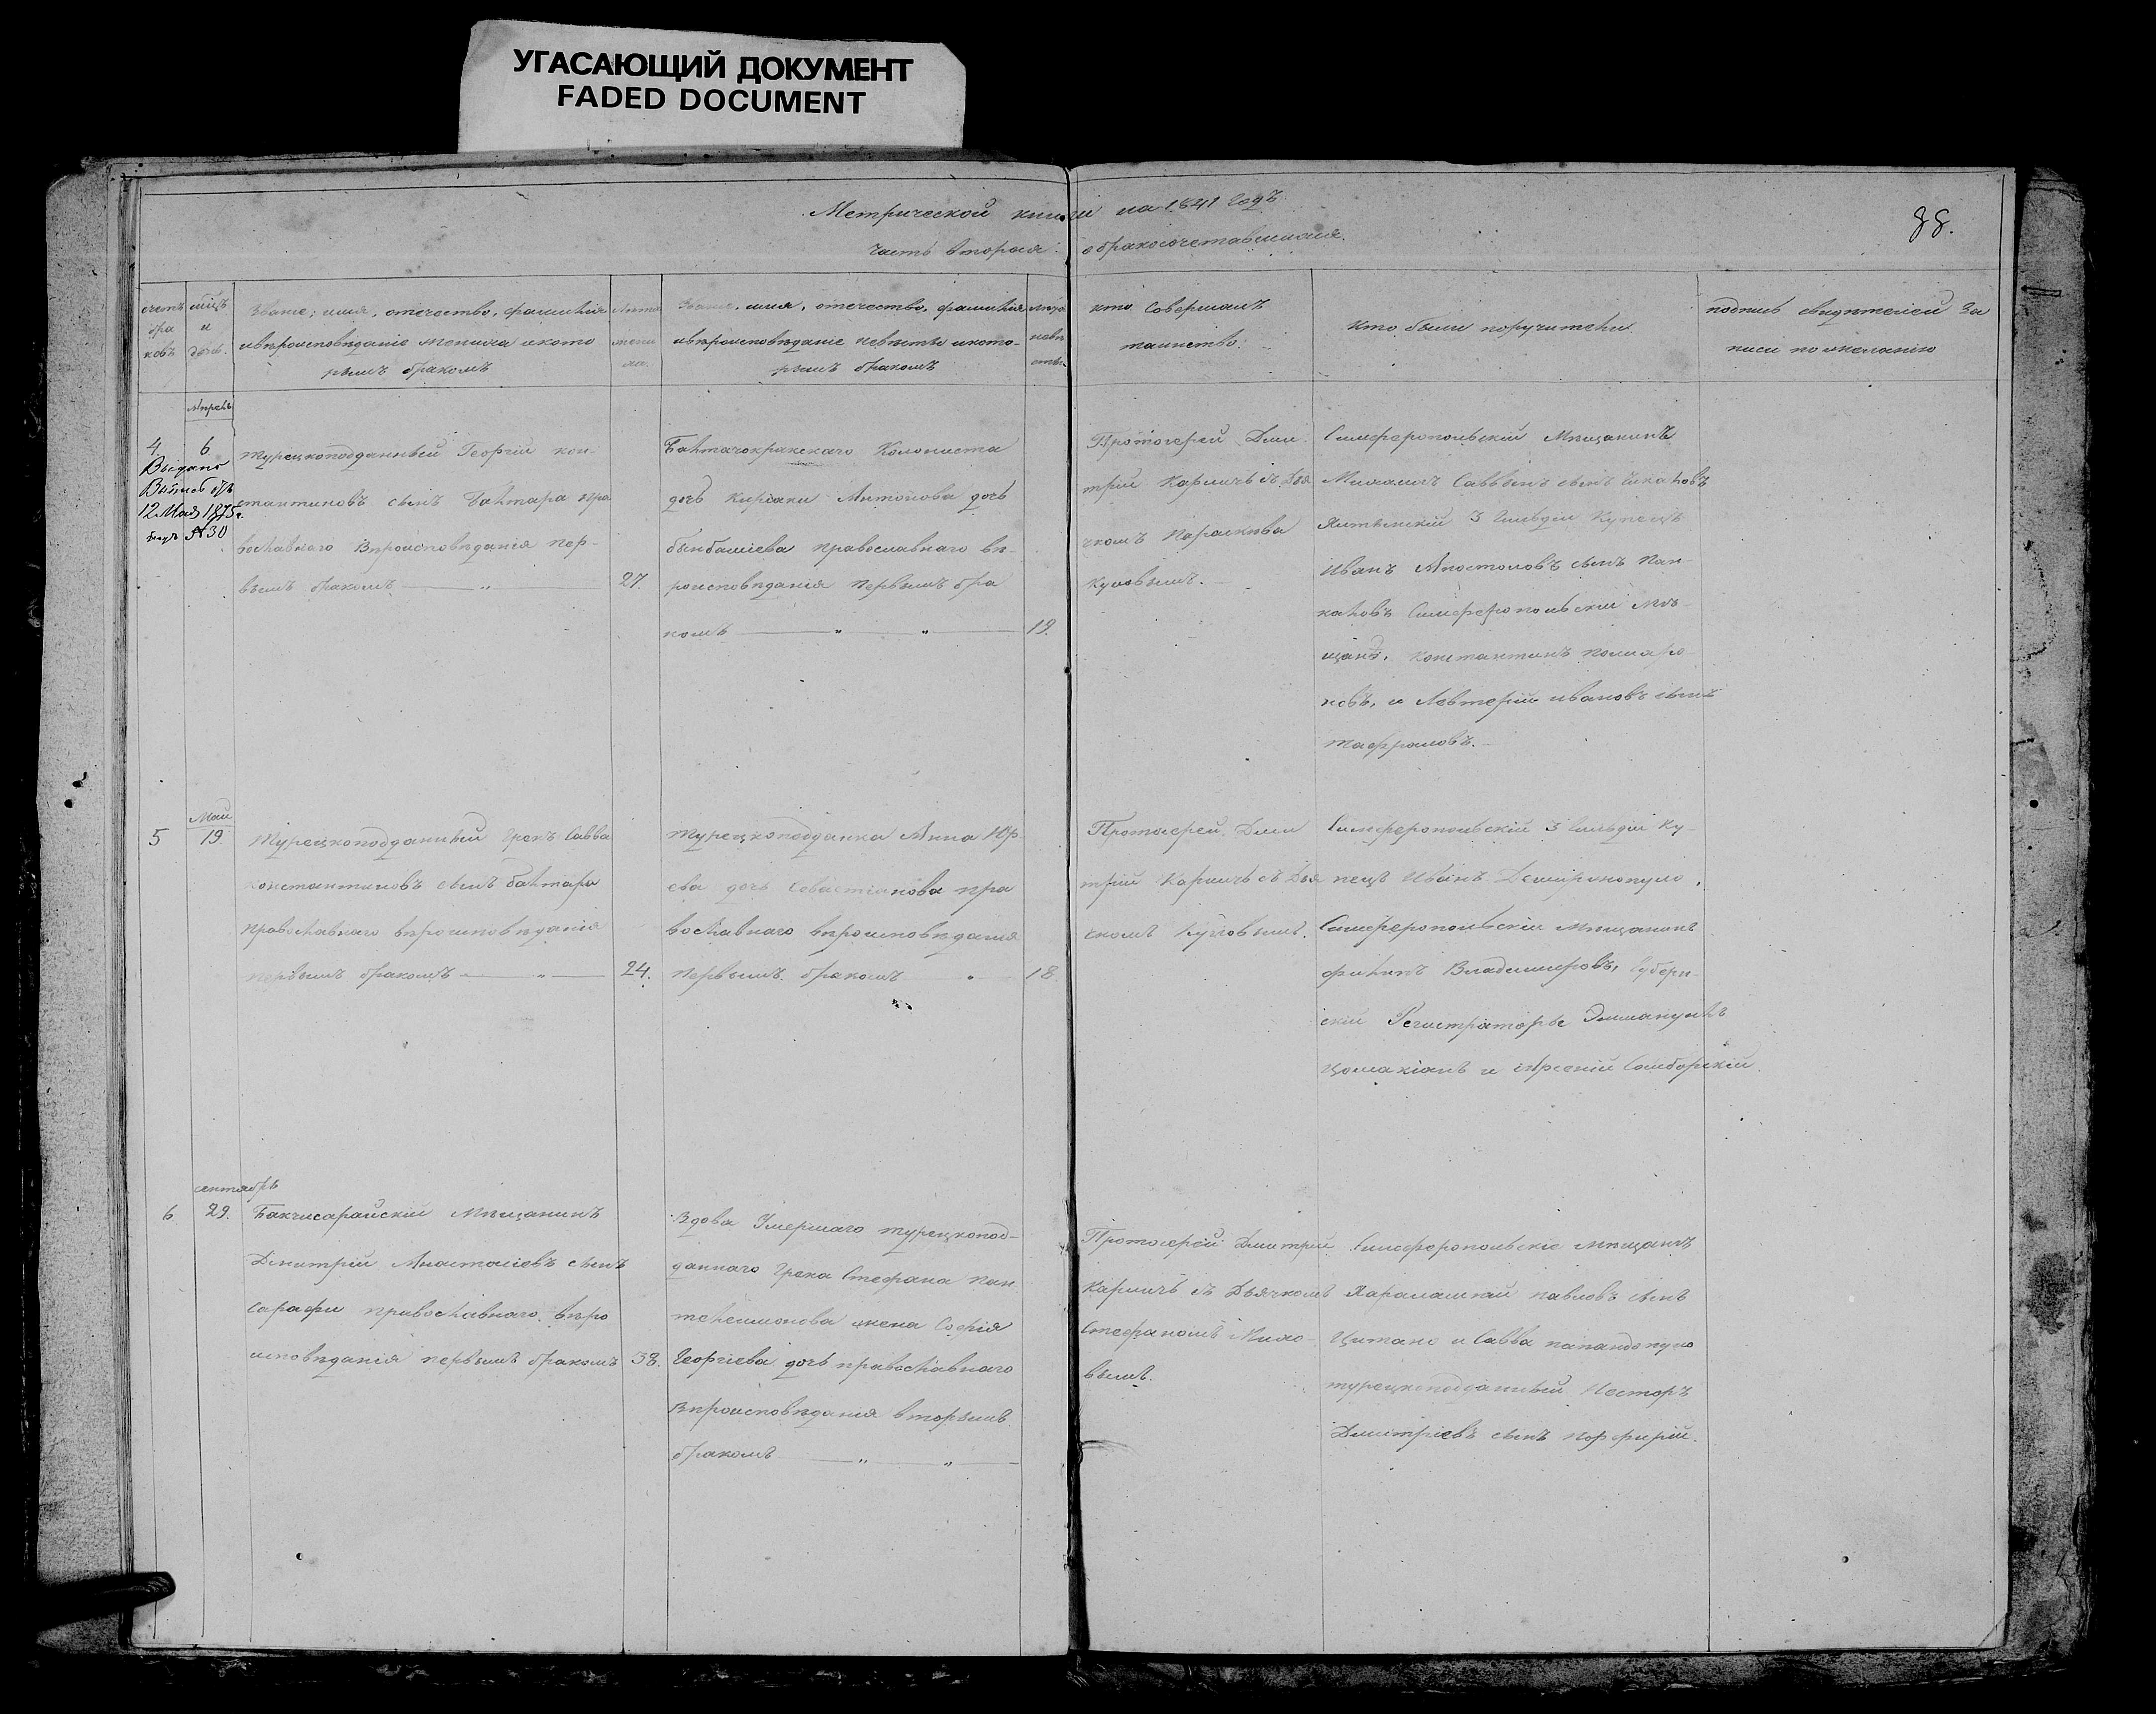 УГАСАЮЩИЙ ДОКУМЕНТ
FADED DOCUMENT
Метрической книги на 1841 годъ
88.
часть вторая о бракосочетавшихся.
счетъ
бра
ковъ
мѣцъ
и
день.
Званіе, имя, отечество, фамилія
ивѣроисповѣданіе жениха икото
рымъ бракомъ
Лѣта
жени
ха.
Званіе, имя, отечество, фамилія
ивѣроисповѣданіе невѣсты икото-
рымъ бракомъ
лѣта
невѣ
сты.
кто Совершалъ
таинство.
кто были поручители
подпись свидѣтелей За
писи по желанію
Апрель
4.
6
Выдано
12 Мая 1875 г.
№ 30
турецкоподданный Георгій кон-
стантиновъ сынъ Балтара пра
вославнаго Вѣроисповѣданія пер-
вымъ бракомъ — " —
27.
Колониста
дочь Киріаки Антонова дочь
православнаго вѣ-
роисповѣданія первымъ бра
комъ — " — " —
19.
Протоіерей Дми
трій Карличъ съ Дья
чкомъ
Симферопольскій Мѣщанинъ
Саввинъ сынъ
3 Гильдіи Купецъ
Иванъ Апостоловъ сынъ
Симферопольскій мѣ-
щан. Константинъ
и Левтерій ивановъ сынъ
Май
5
19.
Турецкоподданный Грекъ Савва
константиновъ сынъ балтара
православнаго вѣроисповѣданія
первымъ бракомъ — " —
24.
турецкоподданка Анна Юр-
ева дочь Севастіанова пра
вославнаго вѣроисповѣданія
первымъ бракомъ "
18.
Протоіерей Дми
трій Карличъ съ Дья
чкомъ
Симферопольскій 3 Гильдіи Ку-
пецъ Иванъ
Симферопольскій Мѣщанинъ
Владимировъ, Губерн-
скій Регистраторъ Эммануилъ
и Арсеній Самборскій.
сентябрь
6
29.
Бакчисарайскій Мѣщанинъ
Дмитрій Анастасіевъ сынъ
Сарафи православнаго вѣро
исповѣданія первымъ бракомъ
38.
Вдова Умершаго турецкопод-
даннаго Грека Стефана Пан
телеимонова жена Софія
Георгіева дочь православнаго
Вѣроисповѣданія вторымъ
бракомъ — " — " —
Протоіерей Дмитрій
Карличъ съ Дьячкомъ
Стефаномъ
вымъ.
Симферопольскіе мѣщанъ
Харалампій павловъ сынъ
и Савва папандопуло
турецкоподданный Несторъ
Дмитріевъ сынъ порфирій.